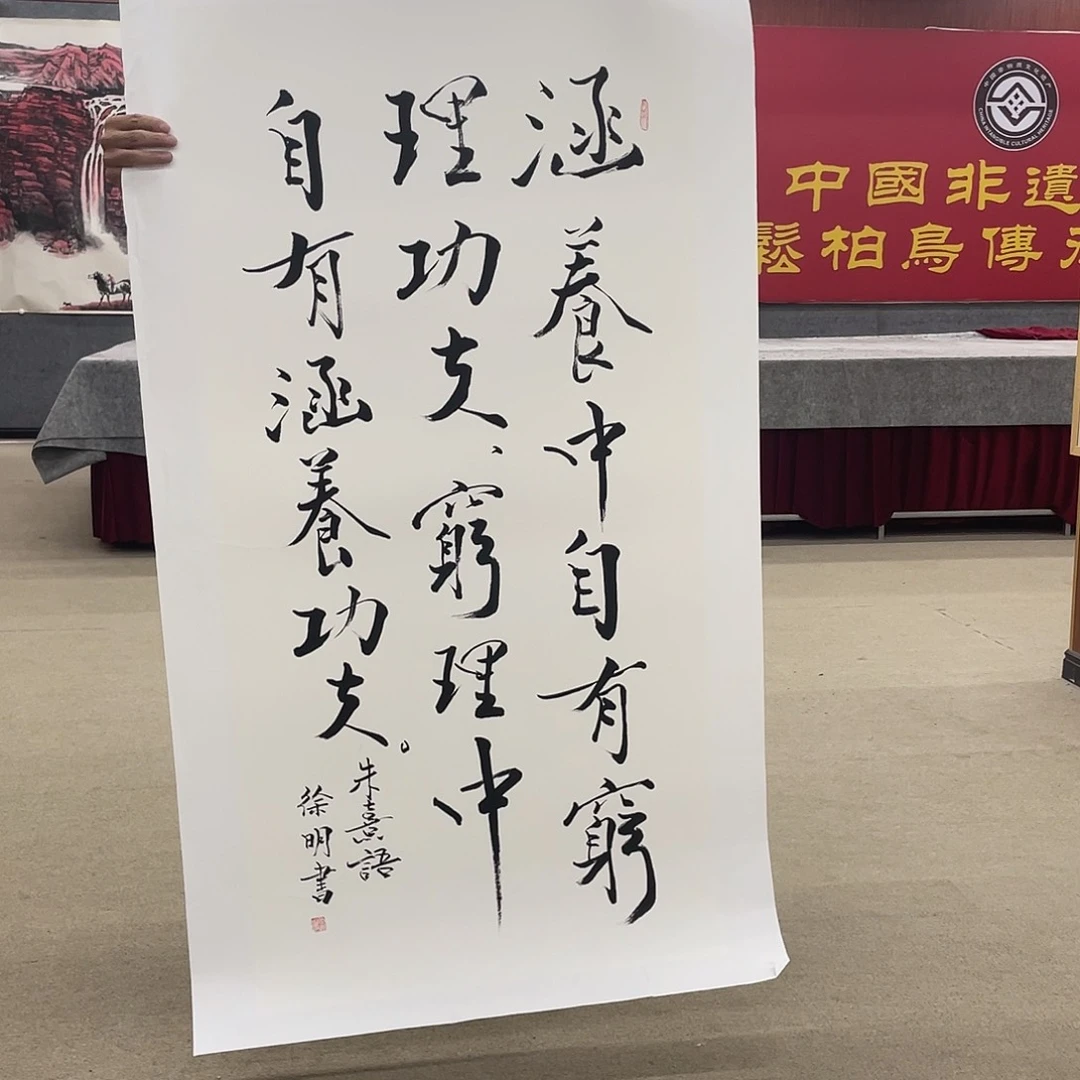 涵養中自有窮
理功夫、窮理中
自有涵養功夫。
朱熹語
徐明書
中國非遺
鬆柏鳥傳
CHINA INTANGIBLE CULTURAL HERITAGE